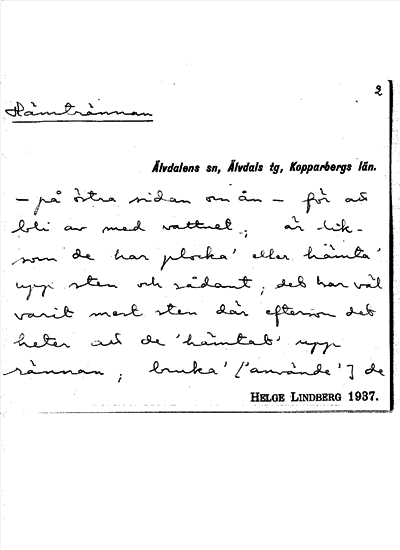 2
Hämtrännan
Älvdalens sn, Älvdals tg, Kopparbergs län.
– på östra sidan om ån – för att
bli av med vattnet; är lik-
som de har plocka' eller hämta'
upp sten och sådant; det har väl
varit mest sten där eftersom det
heter att de 'hämtat' upp
rännan; bruka' ['använde'] de
HELGE LINDBERG 1937.